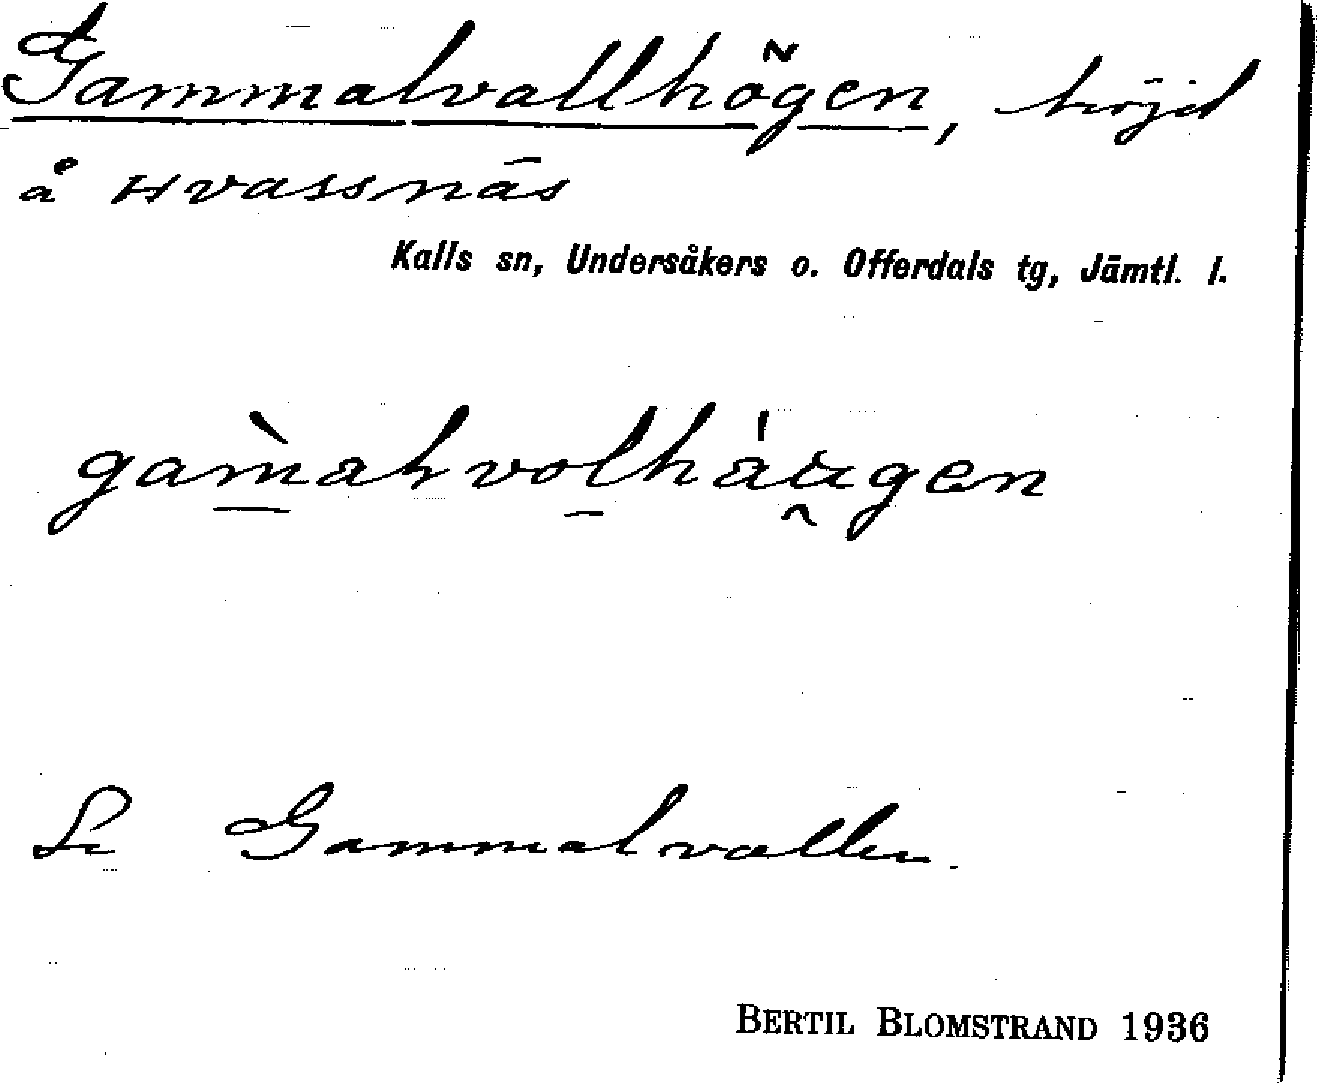 Gammalvallhögen, höjd
å Hvassnäs
Kalls sn, Undersåkers o. Offerdals tg, Jämtl. l.
gam̀alvolhȧu̯gen
Se Gammalvallen.
BERTIL BLOMSTRAND 1936